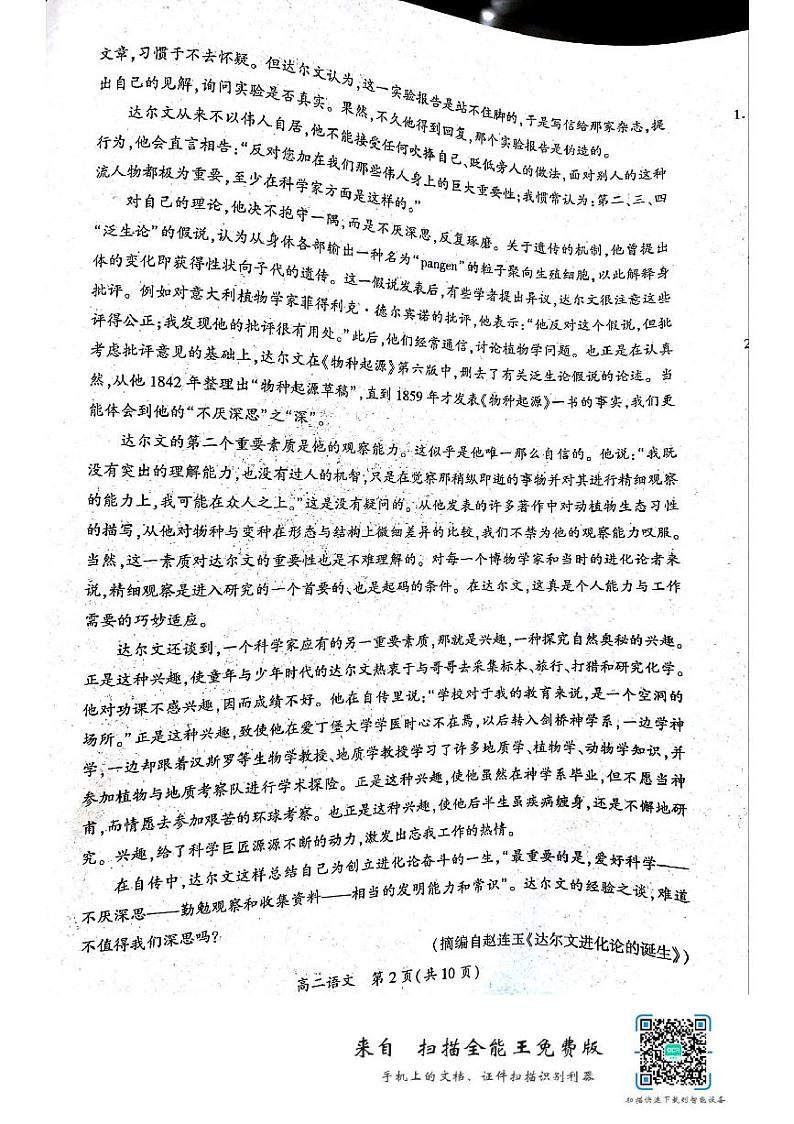 文章，习惯于不去怀疑。但达尔文认为，这一实验报告是站不住脚的，于是写信给那家杂志，提
出自己的见解，询问实验是否真实。果然，不久他得到回复，那个实验报告是伪造的。
达尔文从来不以伟人自居，他不能接受任何吹捧自己、贬低旁人的做法，面对别人的这种
行为，他会直言相告：“反对您加在我们那些伟人身上的巨大重要性；我惯常认为：第二、三、四
流人物都极为重要，至少在科学家方面是这样的。”
对自己的理论，他决不抱守一隅，而是不厌深思，反复琢磨。关于遗传的机制，他曾提出
“泛生论”的假说，认为从身体各部输出一种名为“pangen”的粒子聚向生殖细胞，以此解释身
体的变化即获得性状向子代的遗传。这一假说发表后，有些学者提出异议，达尔文很注意这些
批评。例如对意大利植物学家菲得利克·德尔宾诺的批评，他表示：“他反对这个假说，但批
评得公正；我发现他的批评很有用处。”此后，他们经常通信，讨论植物学问题。也正是在认真
考虑批评意见的基础上，达尔文在《物种起源》第六版中，删去了有关泛生论假说的论述。当
然，从他 1842 年整理出“物种起源草稿”，直到 1859 年才发表《物种起源》一书的事实，我们更
能体会到他的“不厌深思”之“深”。
达尔文的第二个重要素质是他的观察能力。这似乎是他唯一那么自信的。他说：“我既
没有突出的理解能力，也没有过人的机智，只是在觉察那稍纵即逝的事物并对其进行精细观察
的能力上，我可能在众人之上。”这是没有疑问的。从他发表的许多著作中对动植物生态习性
的描写，从他对物种与变种在形态与结构上微细差异的比较，我们不禁为他的观察能力叹服。
当然，这一素质对达尔文的重要性也是不难理解的。对每一个博物学家和当时的进化论者来
说，精细观察是进入研究的一个首要的、也是起码的条件。在达尔文，这真是个人能力与工作
需要的巧妙适应。
达尔文还谈到，一个科学家应有的另一重要素质，那就是兴趣，一种探究自然奥秘的兴趣。
正是这种兴趣，使童年与少年时代的达尔文热衷于与哥哥去采集标本、旅行、打猎和研究化学。
他对功课不感兴趣，因而成绩不好。他在自传里说：“学校对于我的教育来说，是一个空洞的
场所。”正是这种兴趣，致使他在爱丁堡大学学医时心不在焉，以后转入剑桥神学系；一边学神
学，一边却跟着汉斯罗等生物学教授、地质学教授学习了许多地质学、植物学、动物学知识，并
参加植物与地质考察队进行学术探险。正是这种兴趣，使他虽然在神学系毕业，但不愿当神
甫，而情愿去参加艰苦的环球考察。也正是这种兴趣，使他后半生虽疾病缠身，还是不懈地研
究。兴趣，给了科学巨匠源源不断的动力，激发出忘我工作的热情。
在自传中，达尔文这样总结自己为创立进化论奋斗的一生，“最重要的是，爱好科学——
不厌深思——勤勉观察和收集资料——相当的发明能力和常识”。达尔文的经验之谈，难道
不值得我们深思吗？
（摘编自赵连玉《达尔文进化论的诞生》）
高二语文 第2页（共10页）
1.
2
来自 扫描全能王免费版
手机上的文档、证件扫描识别利器
扫描快速下载到智能设备